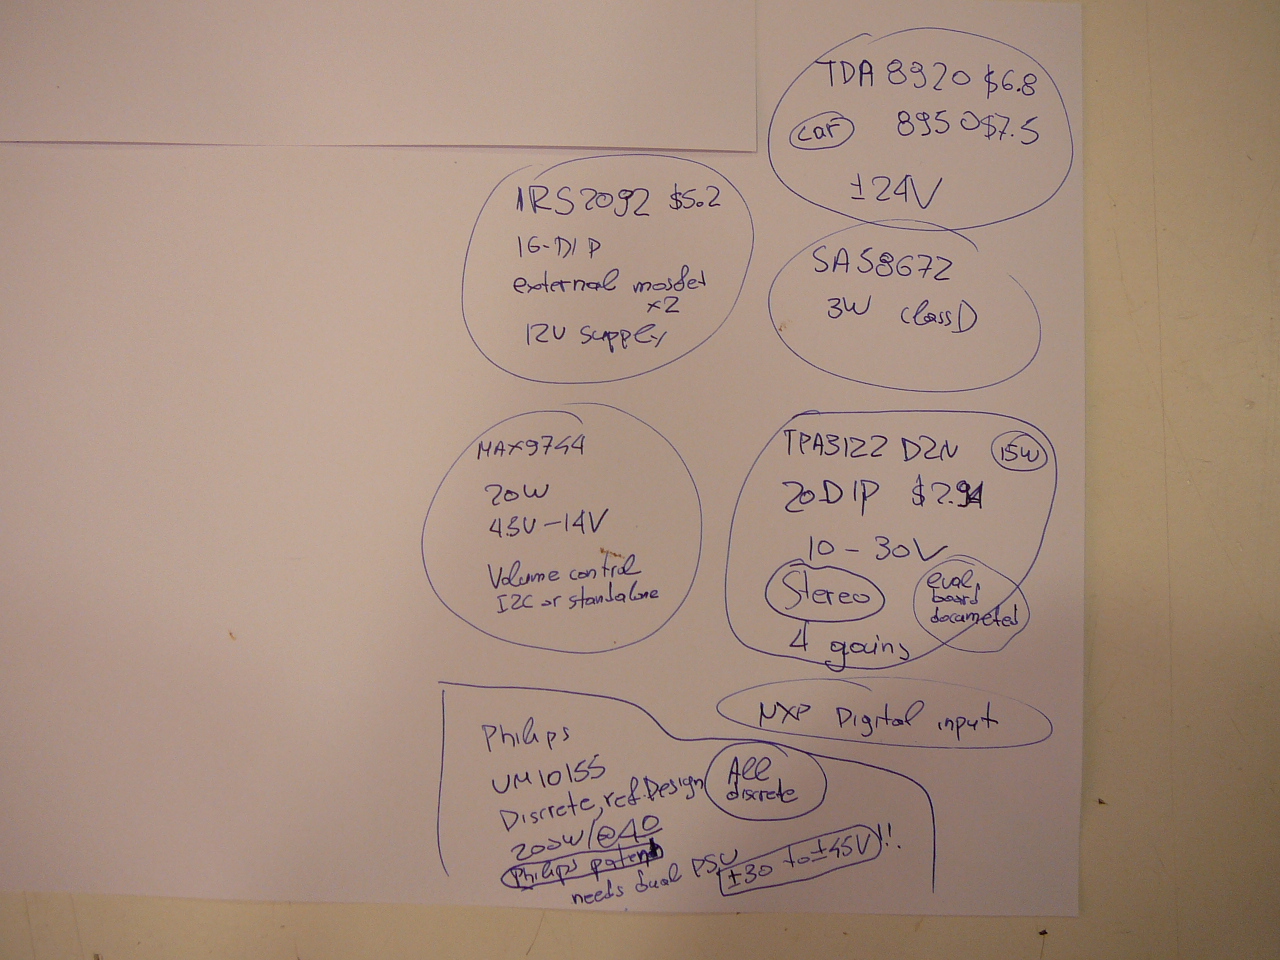 TDA 8920 $6.8
car 8950 $7.5
±24V
IRS2092 $5.2
16-DIP
external mosfet
x2
12V supply
SAS8672
3W classD
MAX9744
20W
4.5V-14V
Volume control
I2C or standalone
TPA3122 D2N 15W
20DIP $2.94
10-30V
Stereo
eval
board
documeted
4 gains
NXP Digital input
Philips
UM10155
Discrete, ref.Design
200W/@4Ω
Philips patent
needs dual PSU ±30 to ±45V !!
All
discrete